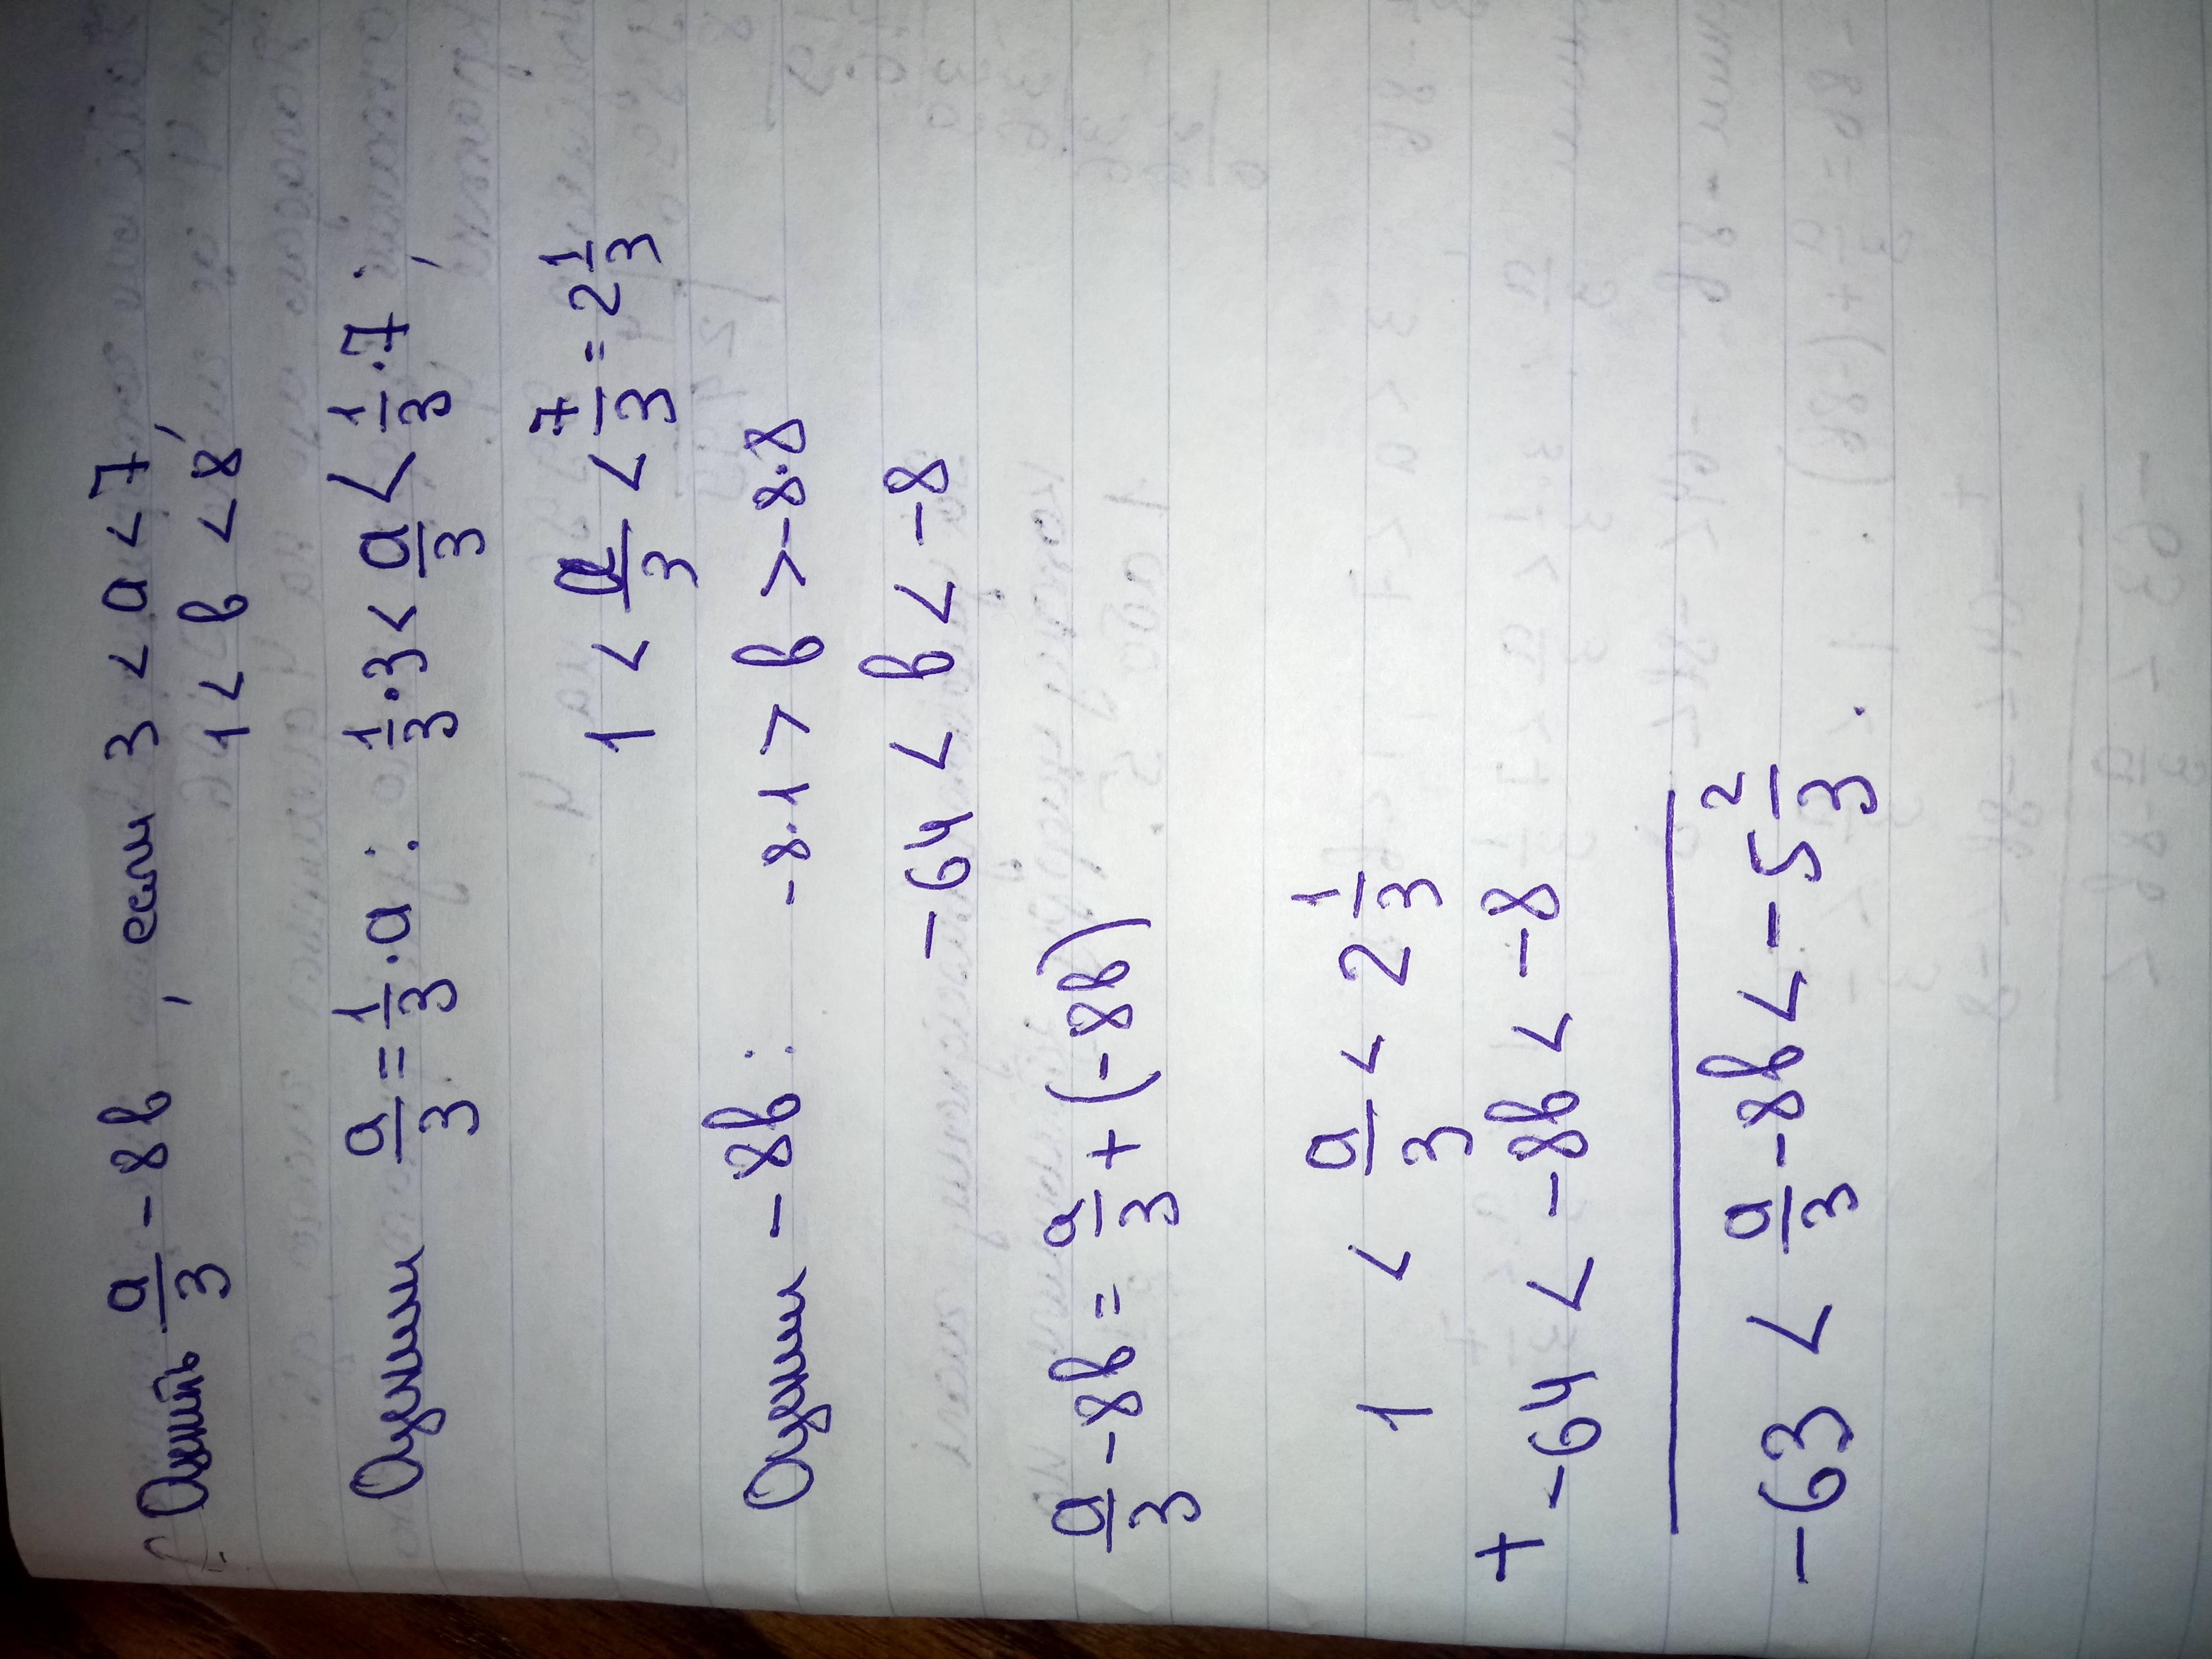 Оценить a/3 - 8в, если 3 < a < 7,
1 < в < 8
Оценим a/3 = 1/3 · a : 1/3 · 3 < a/3 < 1/3 · 7 ;
1 < a/3 < 7/3 = 2 1/3
Оценим -8в : -8·1 > в > -8·8
-64 < в < -8
a/3 - 8в = a/3 + (-8в)
1 < a/3 < 2 1/3
+ -64 < -8в < -8
-63 < a/3 - 8в < -5 2/3.